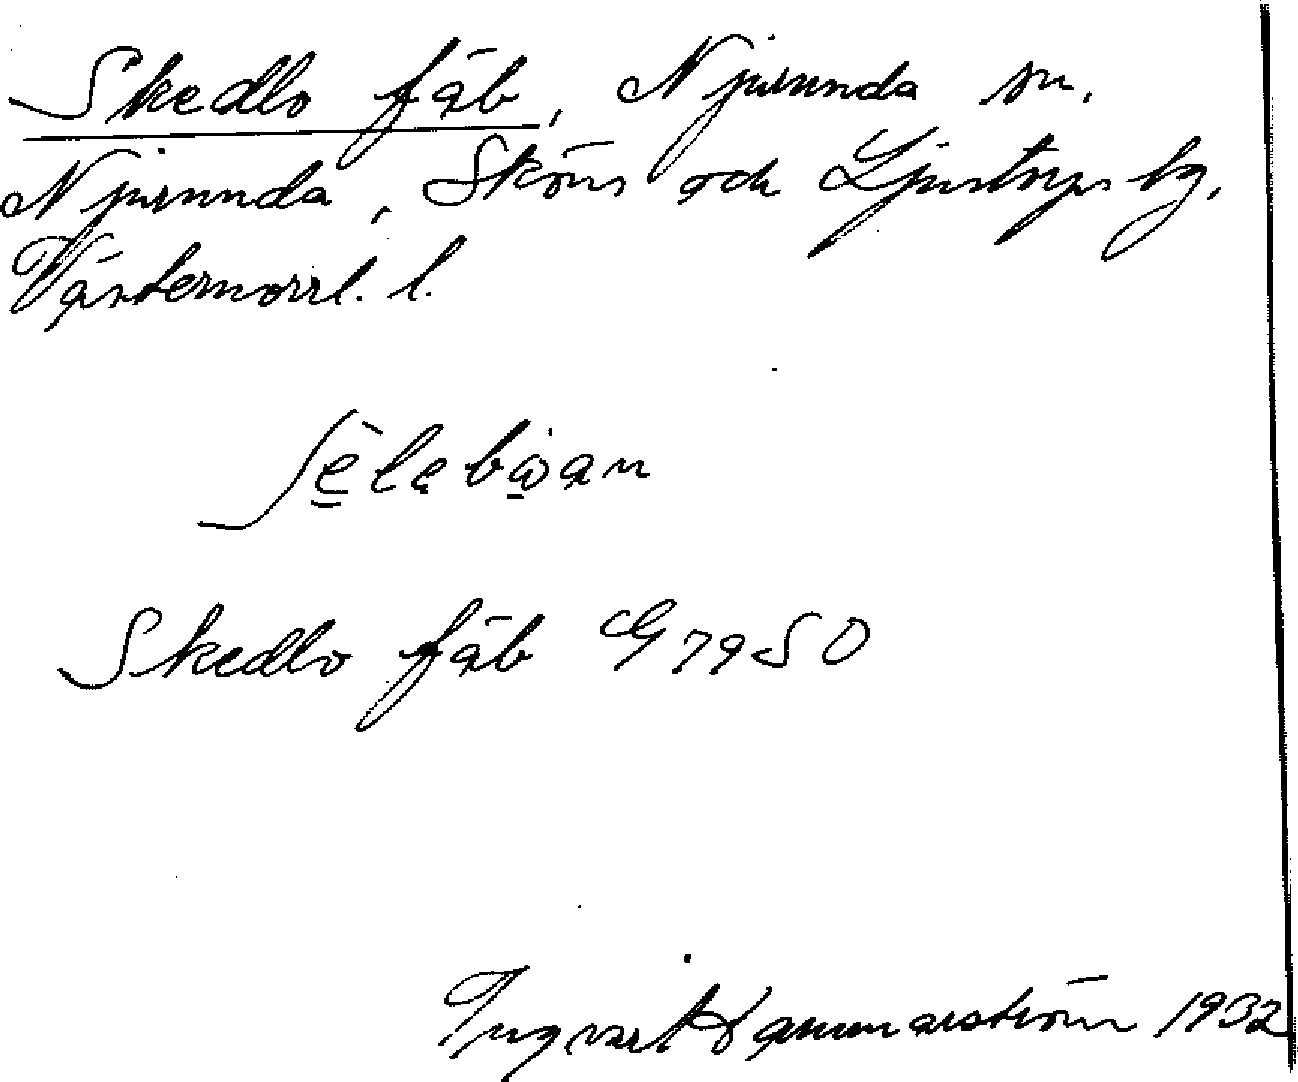 Skedlo fäb, Njurunda sn.
Njurunda, Sköns och Ljustorps tg.
Västernorrl. l.
Skedlo fäb G 79 SO
Ingvar Hammarström 1932